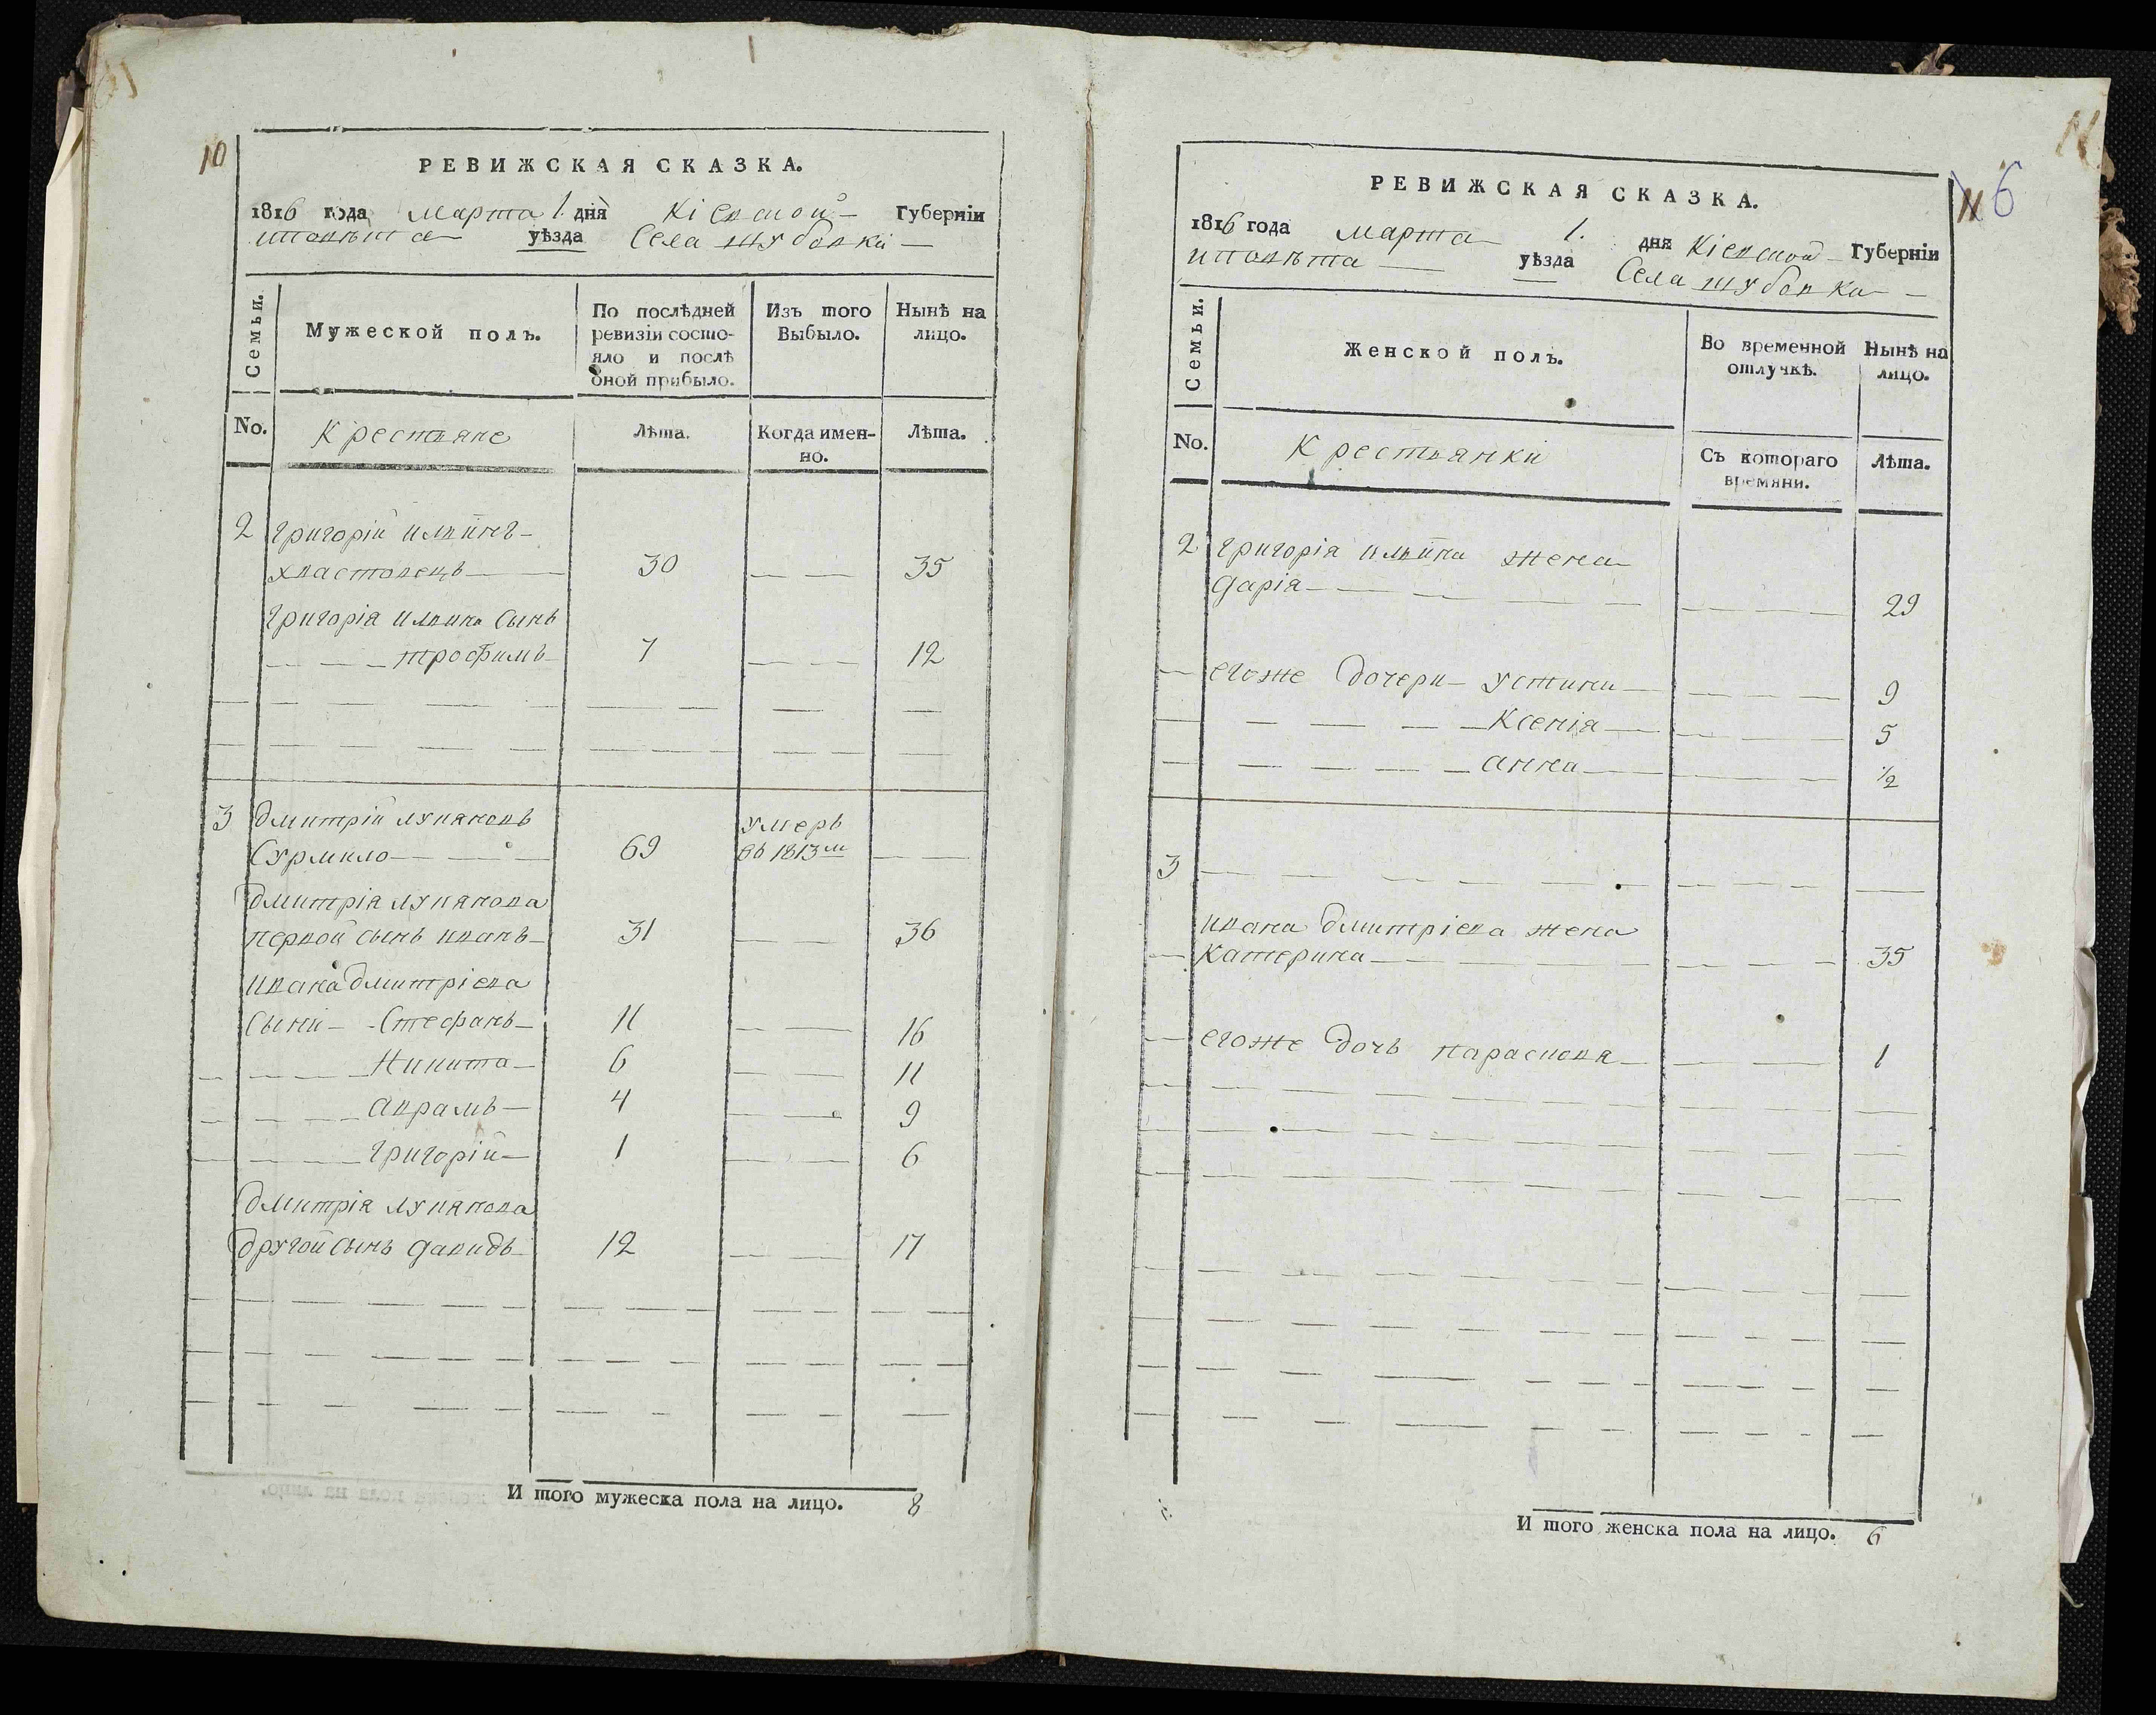 10
РЕВИЖСКАЯ СКАЗКА.
1816 года Марта 1. дня Кіевской Губерніи
уѣзда Села Шубовки
Семьи.
Мужеской полъ.
По послѣдней ревизіи состояло и послѣ оной прибыло.
Изъ того Выбыло.
Нынѣ на лицо.
No.
Крестьяне
Лѣта.
Когда именно.
Лѣта.
2 Григорій Ильинъ
Хвастовецъ 30 35
Григорія Ильина Сынъ
Трофимъ 7 12
3 Дмитрій Лукяновъ Умеръ
Сурмило 69 въ 1813м
Дмитрія Лукянова
первой сынъ Иванъ 31 36
Ивана Дмитріева
Сыни Стефанъ 11 16
Никита 6 11
Аврамъ 4 9
Григорій 1 6
Дмитрія Лукянова
другой Сынъ Давидъ 12 17
И того мужеска пола на лицо. 8
11
11 6
РЕВИЖСКАЯ СКАЗКА.
1816 года Марта 1. дня Кіевской Губерніи
уѣзда Села Шубовки
Семьи.
Женской полъ.
Во временной отлучкѣ.
Нынѣ на лицо.
No.
Крестьянки
Съ котораго времяни.
Лѣта.
2 Григорія Ильина жена
Дарія 29
егоже дочери Устина 9
Ксенія 5
Анна 1/2
3
Ивана Дмитріева жена
Катерина 35
егоже дочь Параскова 1
И того женска пола на лицо. 6